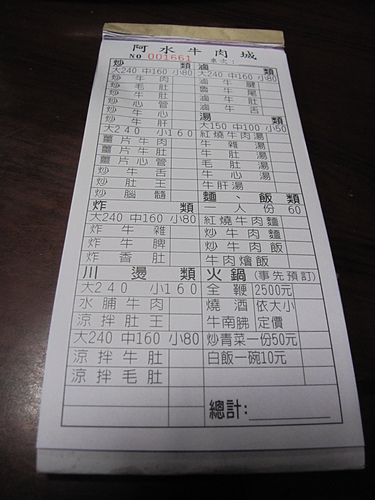 阿水牛肉城
NO 001661 桌次：
炒 類
大240 中160 小80
炒牛肉
炒毛肚
炒牛肚
炒心管
炒牛心
炒牛肝
大240 小160
薑片牛肚
薑片心管
炒牛舌
炒肚王
炒腦髓
炸 類
大240 中160 小80
炸牛雜
炸牛脾
炸香肚
川燙 類
大240 小160
水脯牛肉
涼拌肚王
大240 中160 小80
涼拌牛肚
涼拌毛肚
滷 類
大240 中160 小80
滷牛腱
滷牛尾
滷牛肚
滷牛舌
湯 類
大150 中100 小50
紅燒牛肉湯
牛雜湯
牛肚湯
毛肚湯
牛心湯
牛肝湯
麵、飯 類
一人份 60
紅燒牛肉麵
炒牛肉麵
炒牛肉飯
牛肉燴飯
火鍋(事先預訂)
全鞭 2500元
燒酒 依大小
牛南胇 定價
炒青菜一份50元
白飯一碗10元
總計: